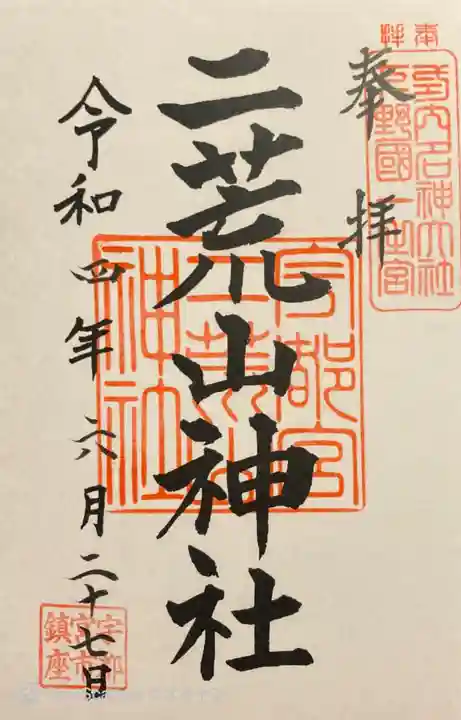 奉拝
奉拜
式内名神大社
下野國一之宮
二荒山神社
宇都宮
二荒山
神社
令和四年六月二十七日
宇都
宮市
鎮座